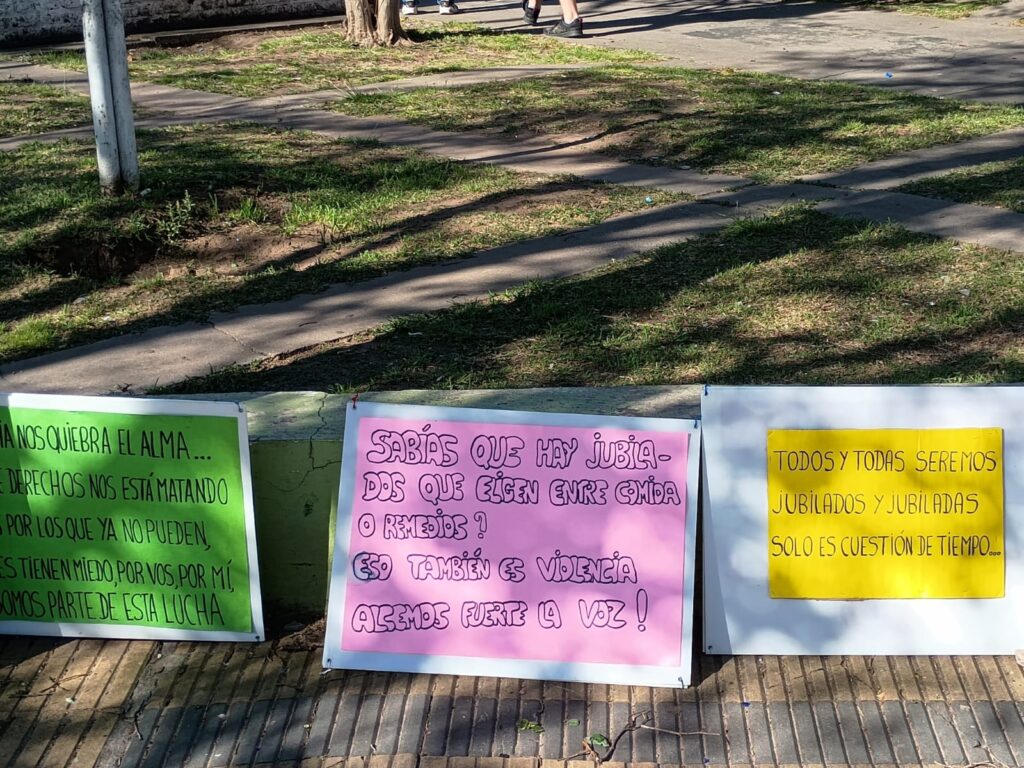 NOS QUIEBRA EL ALMA...
DERECHOS NOS ESTÁ MATANDO
POR LOS QUE YA NO PUEDEN,
TIENEN MIEDO, POR VOS, POR MÍ,
SOMOS PARTE DE ESTA LUCHA
SABÍAS QUE HAY JUBILA-
DOS QUE ELIGEN ENTRE COMIDA
O REMEDIOS?
ESO TAMBIÉN ES VIOLENCIA
ALCEMOS FUERTE LA VOZ!
TODOS Y TODAS SEREMOS
JUBILADOS Y JUBILADAS
SOLO ES CUESTIÓN DE TIEMPO...